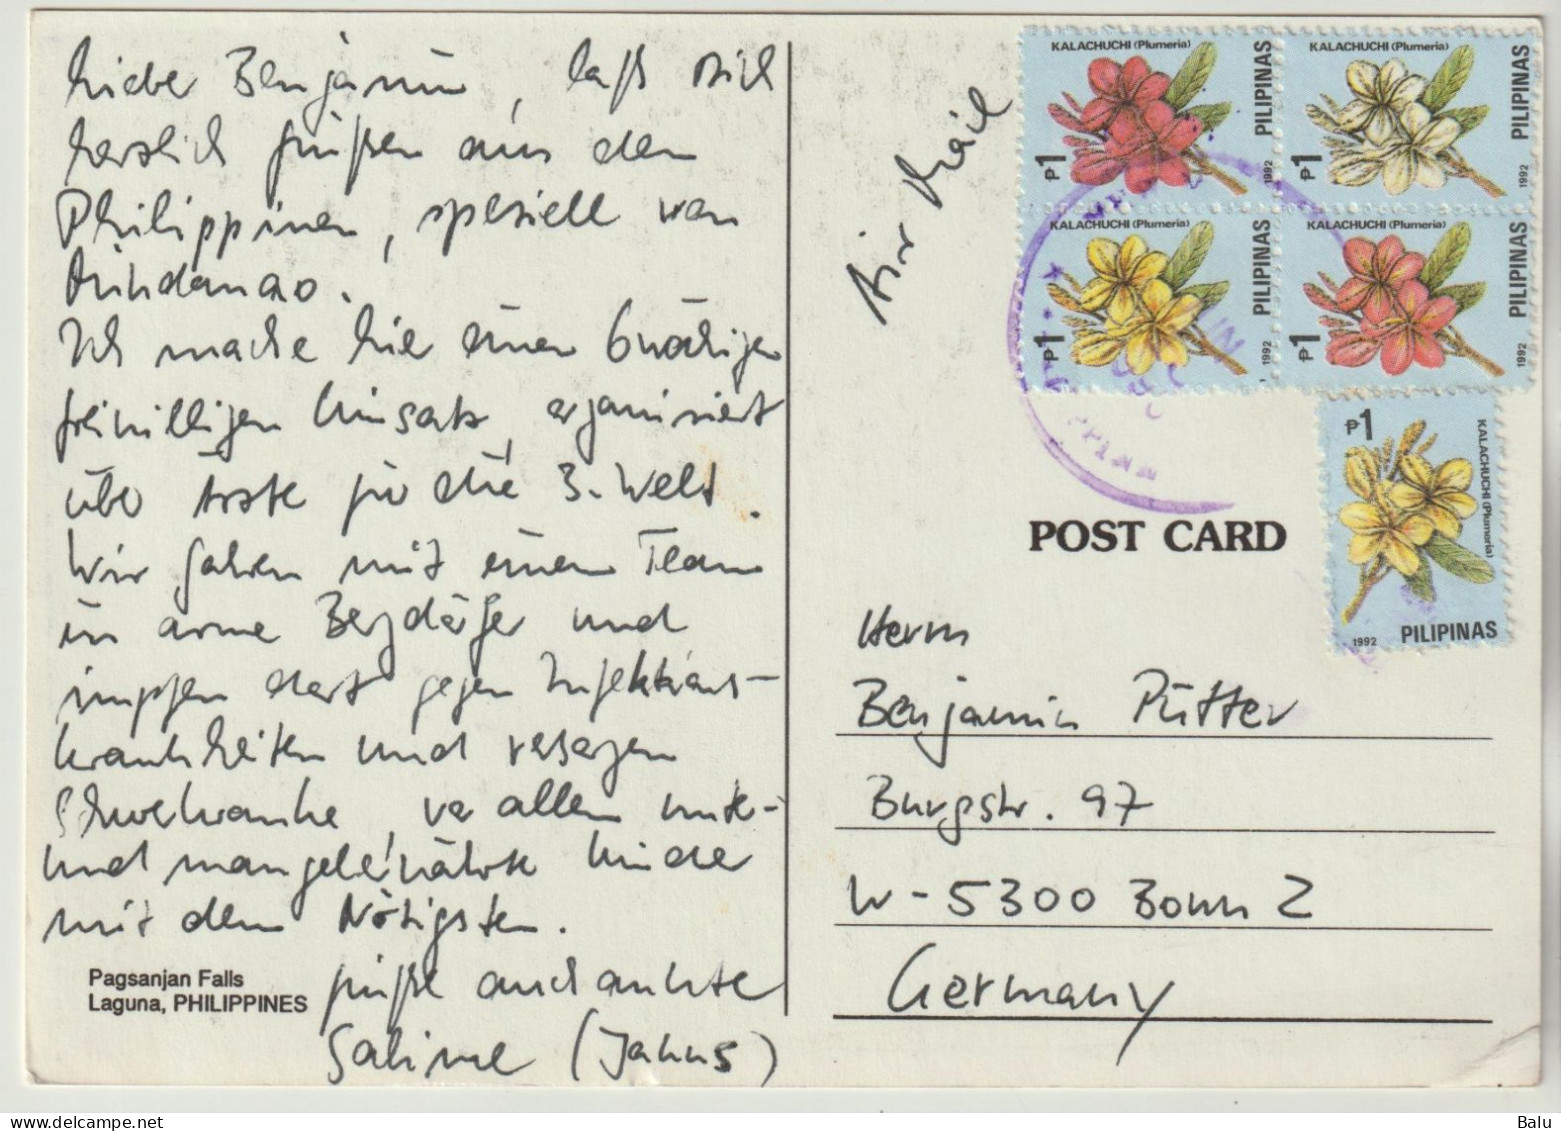 Liebe Benjamin, laß dich
herzlich grüßen aus den
Philippinen, speziell von
Mindanao.
Ich mache hier einen 6wöchigen
freiwilligen Einsatz, organisiert
über Ärzte für die 3. Welt.
Wir fahren mit einem Team
in arme Bergdörfer und
impfen dort gegen Infektions-
krankheiten und versorgen
Schwerkranke, vor allem unter-
und mangelernährte Kinder
mit dem Nötigsten.
Grüße auch an
Sabine (Jahns)
Pagsanjan Falls
Laguna, PHILIPPINES
Air Mail
KALACHUCHI (Plumeria)
₱1
1992
PILIPINAS
KALACHUCHI (Plumeria)
₱1
1992
PILIPINAS
KALACHUCHI (Plumeria)
₱1
1992
PILIPINAS
KALACHUCHI (Plumeria)
₱1
1992
PILIPINAS
₱1
KALACHUCHI (Plumeria)
1992 PILIPINAS
POST CARD
Herrn
Benjamin Pütter
Burgstr. 97
W-5300 Bonn 2
Germany
Balu